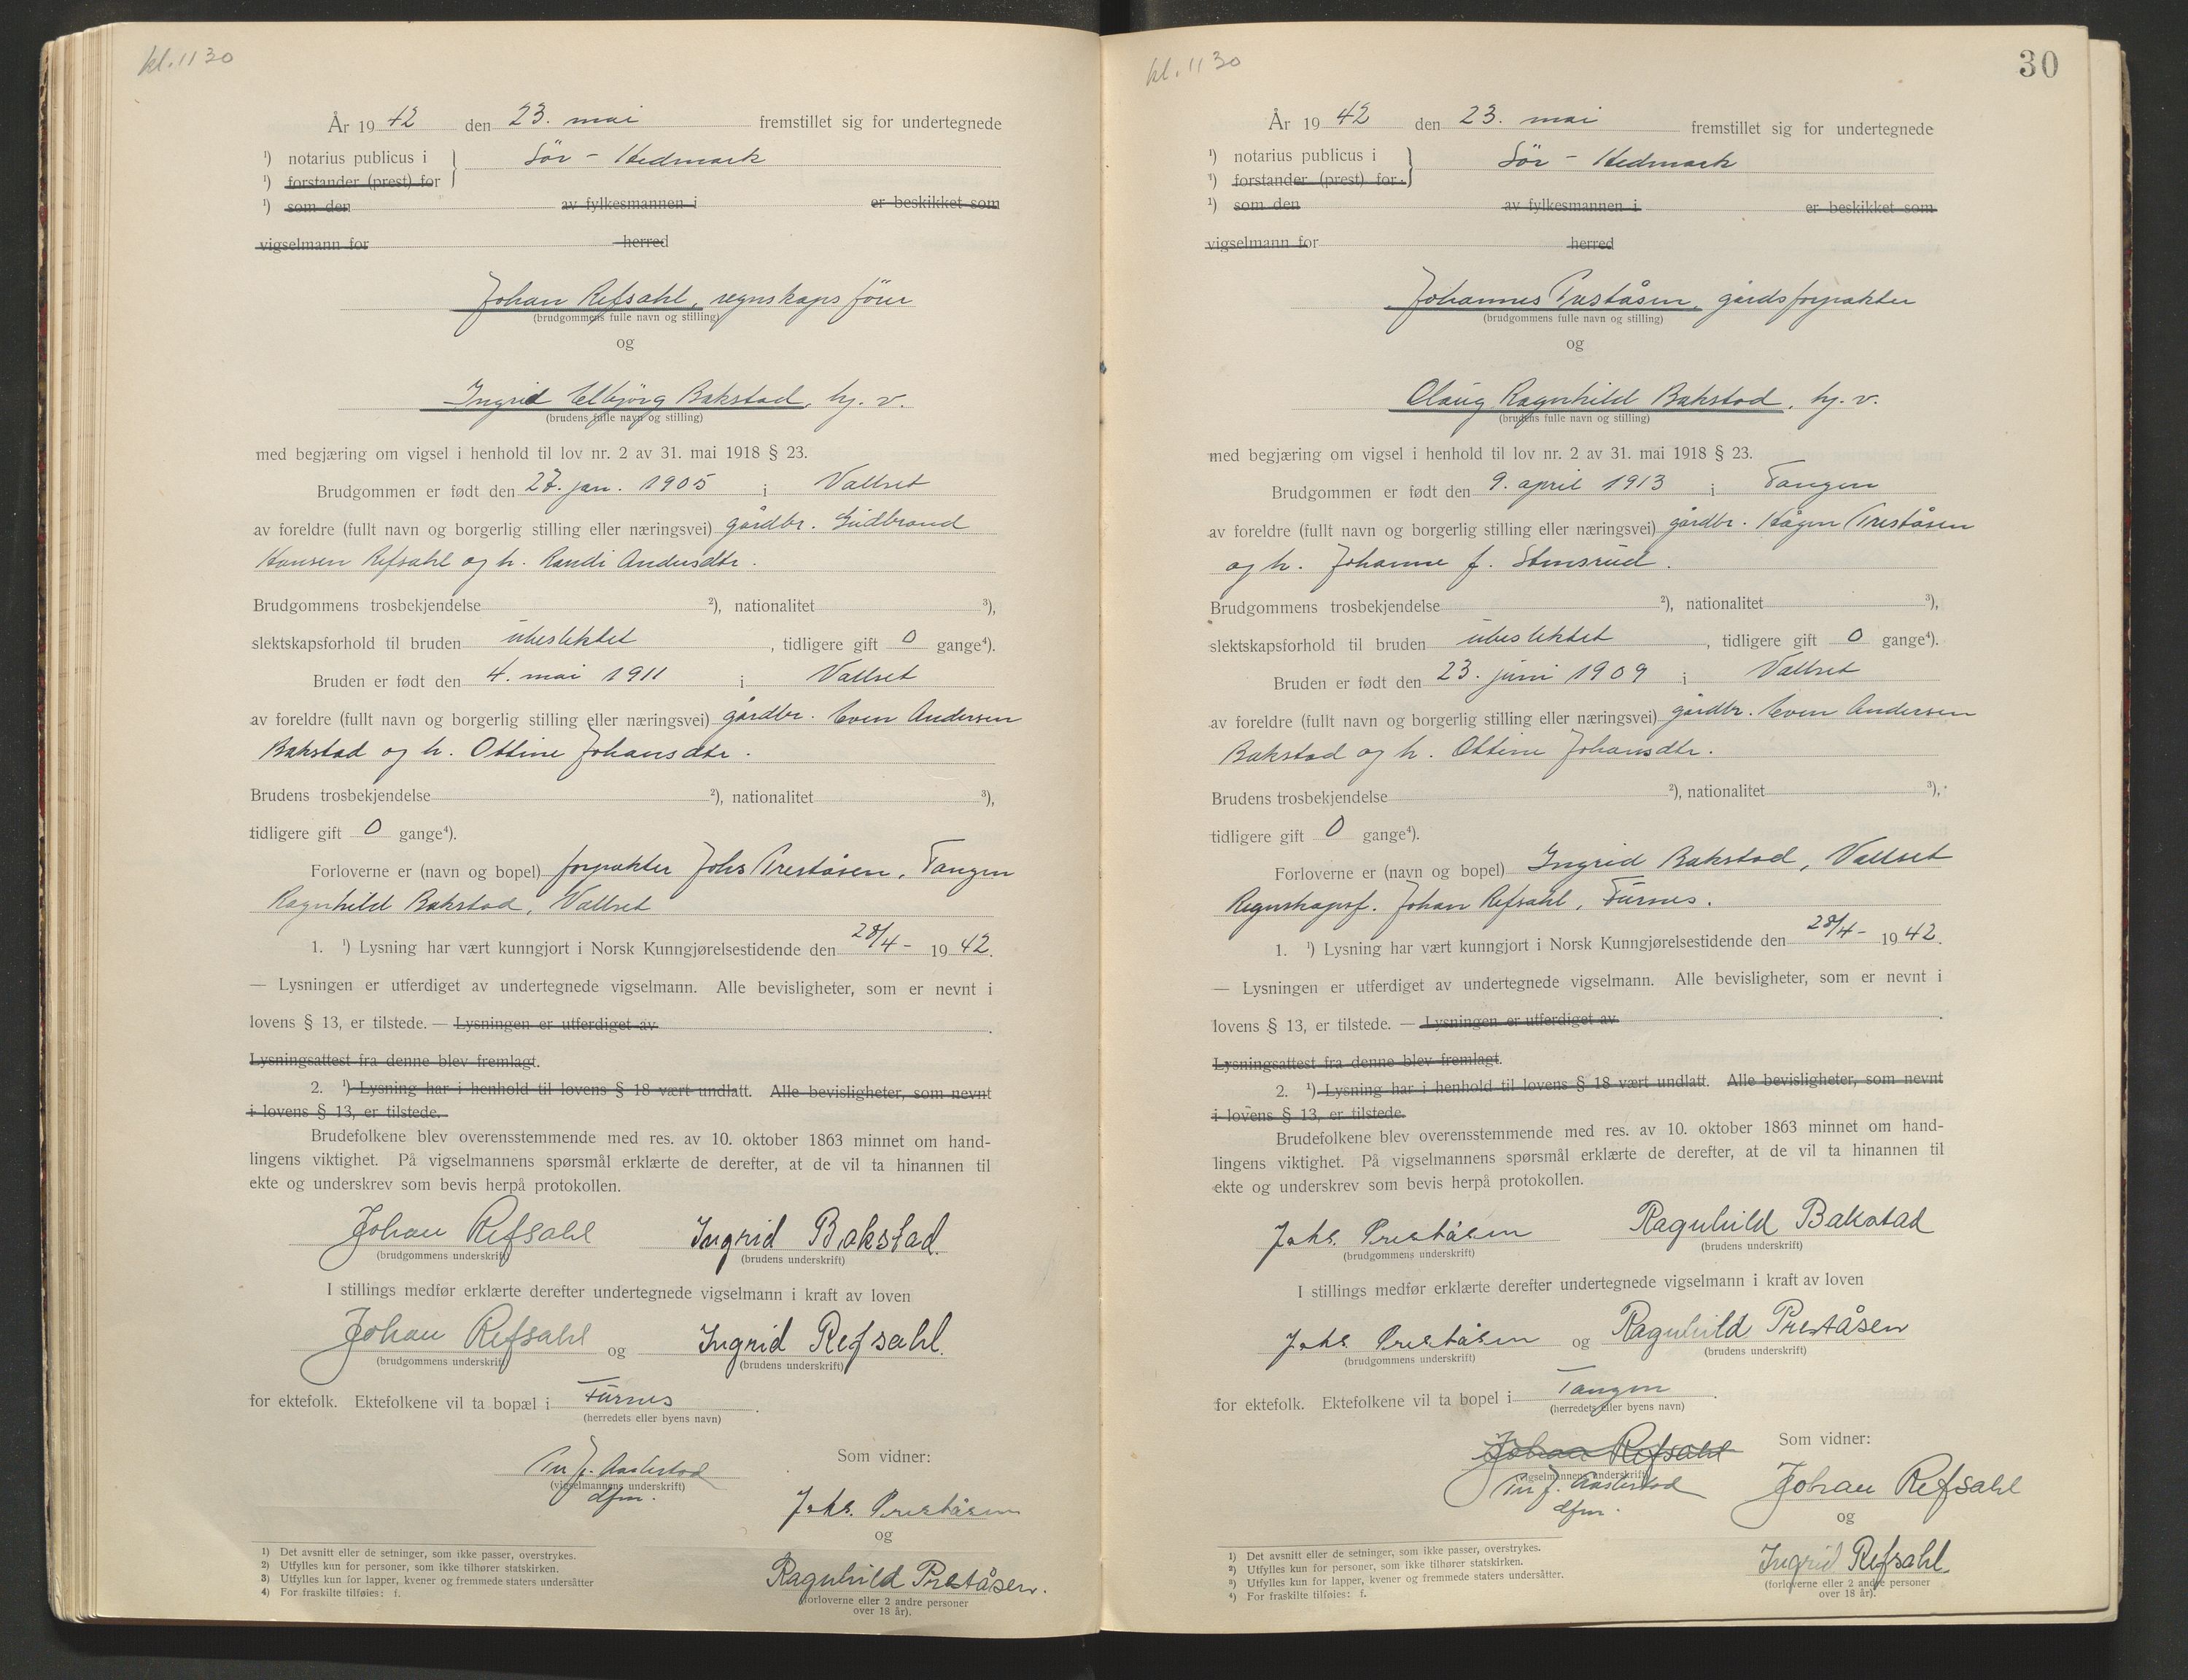 kl. 11 30
År 1942 den 23. mai fremstillet sig for undertegnede
¹) notarius publicus i } Sör - Hedmark
¹) forstander (prest) for
¹) som den av fylkesmannen i er beskikket som
vigselmann for herred
Johan Refsahl, regnskapsförer
(brudgommens fulle navn og stilling)
og
Ingrid Elbjörg Bakstad, hj. v.
(brudens fulle navn og stilling)
med begjæring om vigsel i henhold til lov nr. 2 av 31. mai 1918 § 23.
Brudgommen er født den 27. jan. 1905 i Vallset
av foreldre (fullt navn og borgerlig stilling eller næringsvei) gårdbr. Gudbrand
Hansen Refsahl og h. Randi Andersdtr.
Brudgommens trosbekjendelse ²), nationalitet ³),
slektskapsforhold til bruden ubeslektet, tidligere gift 0 gange⁴).
Bruden er født den 4. mai 1911 i Vallset
av foreldre (fullt navn og borgerlig stilling eller næringsvei) gårdbr. Even Andersen
Bakstad og h. Ottine Johansdtr.
Brudens trosbekjendelse ²), nationalitet ³),
tidligere gift 0 gange⁴).
Forloverne er (navn og bopel) forpakter Johs Preståsen, Tangen
Ragnhild Bakstad, Vallset
1. ¹) Lysning har vært kunngjort i Norsk Kunngjørelsestidende den 28/4- 1942.
— Lysningen er utferdiget av undertegnede vigselmann. Alle bevisligheter, som er nevnt i
lovens § 13, er tilstede. — Lysningen er utferdiget av .
Lysningsattest fra denne blev fremlagt.
2. ¹) Lysning har i henhold til lovens § 18 vært undlatt. Alle bevisligheter, som nevnt
i lovens § 13, er tilstede.
Brudefolkene blev overensstemmende med res. av 10. oktober 1863 minnet om hand-
lingens viktighet. På vigselmannens spørsmål erklærte de derefter, at de vil ta hinannen til
ekte og underskrev som bevis herpå protokollen.
Johan Refsahl Ingrid Bakstad.
(brudgommens underskrift) (brudens underskrift)
I stillings medfør erklærte derefter undertegnede vigselmann i kraft av loven
Johan Refsahl og Ingrid Refsahl.
(brudgommens underskrift) (brudens underskrift)
for ektefolk. Ektefolkene vil ta bopæl i Furnes.
(herredets eller byens navn)
Som vidner:
J. Aastestad
(vigselmannens underskrift)
dfm.
Johs. Preståsen
og
Ragnhild Preståsen.
(forloverne eller 2 andre personer
over 18 år).
1) Det avsnitt eller de setninger, som ikke passer, overstrykes.
2) Utfylles kun for personer, som ikke tilhører statskirken.
3) Utfylles kun for lapper, kvener og fremmede staters undersåtter
4) For fraskilte tilføies: f.
30
kl. 11 30
År 1942 den 23. mai fremstillet sig for undertegnede
¹) notarius publicus i } Sör - Hedmark
¹) forstander (prest) for
¹) som den av fylkesmannen i er beskikket som
vigselmann for herred
Johannes Preståsen, gårdsforpakter
(brudgommens fulle navn og stilling)
og
Olaug Ragnhild Bakstad, hj. v.
(brudens fulle navn og stilling)
med begjæring om vigsel i henhold til lov nr. 2 av 31. mai 1918 § 23.
Brudgommen er født den 9. april 1913 i Tangen
av foreldre (fullt navn og borgerlig stilling eller næringsvei) gårdbr. Hågen Preståsen
og h. Johanne f. Stensrud.
Brudgommens trosbekjendelse ²), nationalitet ³),
slektskapsforhold til bruden ubeslektet, tidligere gift 0 gange⁴).
Bruden er født den 23. juni 1909 i Vallset
av foreldre (fullt navn og borgerlig stilling eller næringsvei) gårdbr. Even Andersen
Bakstad og h. Ottine Johansdtr.
Brudens trosbekjendelse ²), nationalitet ³),
tidligere gift 0 gange⁴).
Forloverne er (navn og bopel) Ingrid Bakstad, Vallset
Regnskapsf. Johan Refsahl, Furnes.
1. ¹) Lysning har vært kunngjort i Norsk Kunngjørelsestidende den 28/4- 1942.
— Lysningen er utferdiget av undertegnede vigselmann. Alle bevisligheter, som er nevnt i
lovens § 13, er tilstede. — Lysningen er utferdiget av .
Lysningsattest fra denne blev fremlagt.
2. ¹) Lysning har i henhold til lovens § 18 vært undlatt. Alle bevisligheter, som nevnt
i lovens § 13, er tilstede.
Brudefolkene blev overensstemmende med res. av 10. oktober 1863 minnet om hand-
lingens viktighet. På vigselmannens spørsmål erklærte de derefter, at de vil ta hinannen til
ekte og underskrev som bevis herpå protokollen.
Johs. Preståsen Ragnhild Bakstad
(brudgommens underskrift) (brudens underskrift)
I stillings medfør erklærte derefter undertegnede vigselmann i kraft av loven
Johs. Preståsen og Ragnhild Preståsen
(brudgommens underskrift) (brudens underskrift)
for ektefolk. Ektefolkene vil ta bopel i Tangen.
(herredets eller byens navn)
Som vidner:
Johan Refsahl
(vigselmannens underskrift)
J. Aastestad
dfm.
Johan Refsahl
og
Ingrid Refsahl.
(forloverne eller 2 andre personer
over 18 år).
1) Det avsnitt eller de setninger, som ikke passer, overstrykes.
2) Utfylles kun for personer, som ikke tilhører statskirken.
3) Utfylles kun for lapper, kvener og fremmede staters undersåtter.
4) For fraskilte tilføies: f.